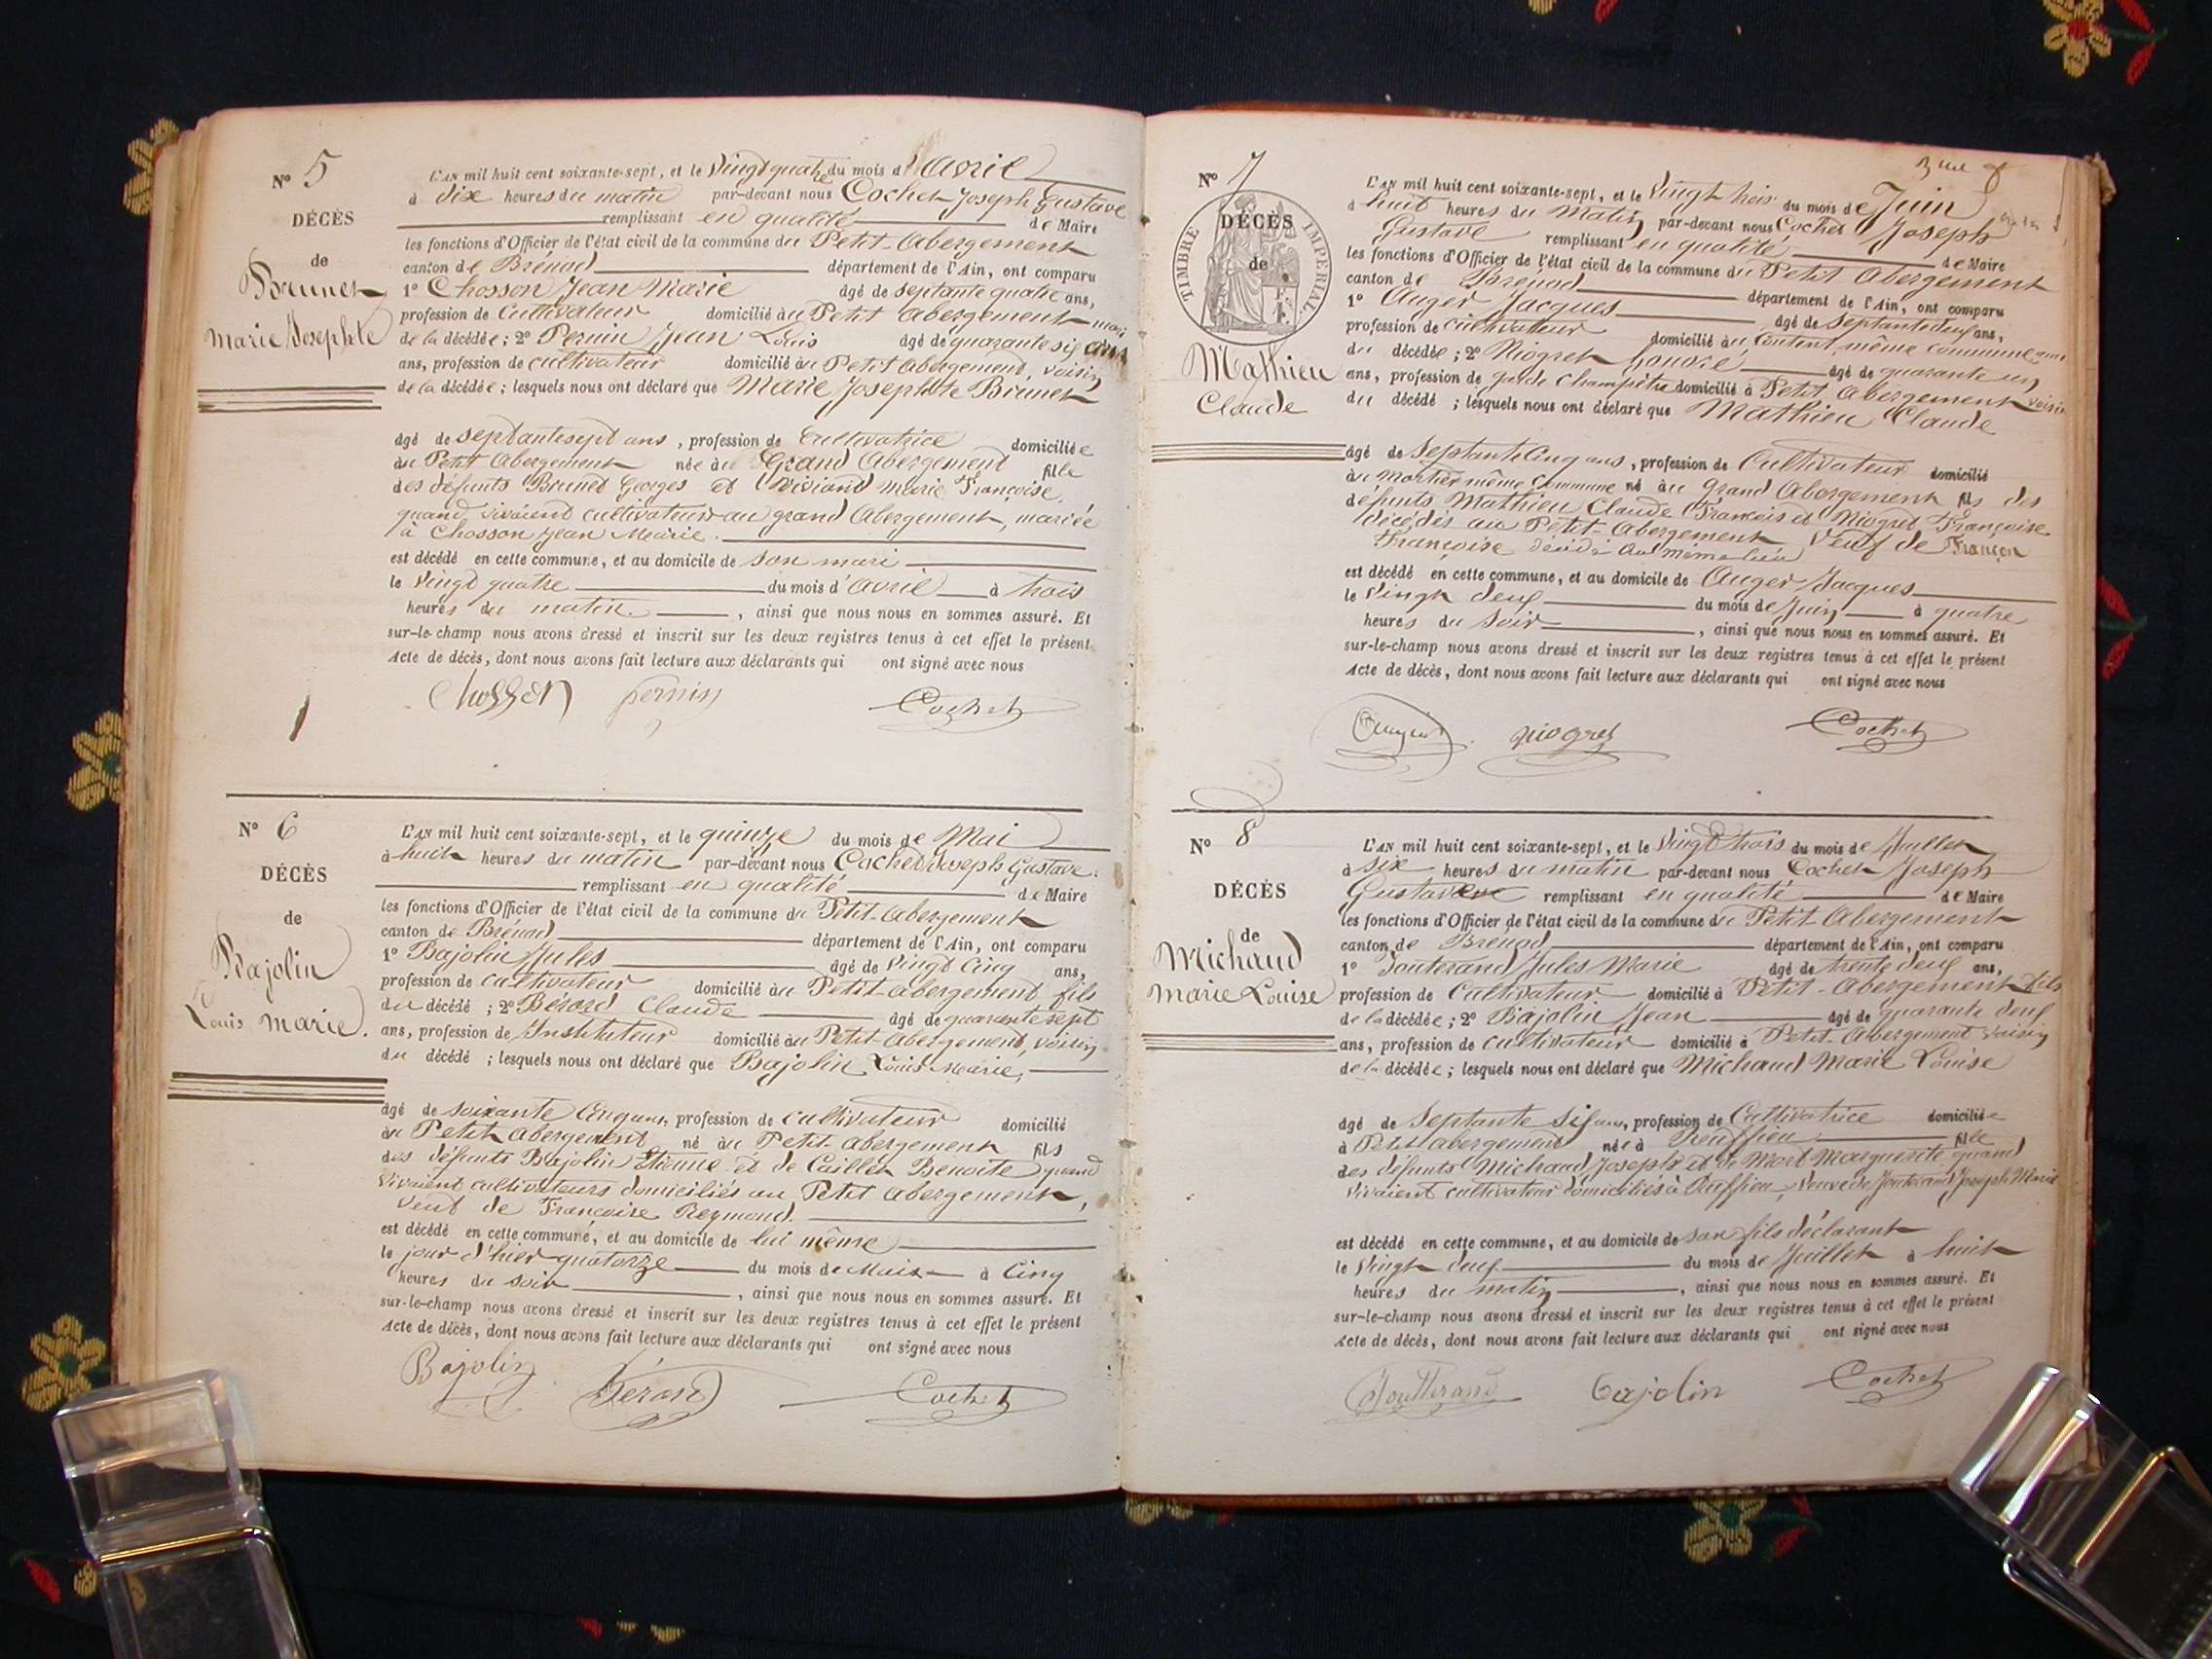 N° 5
DÉCÈS
de
Brunet
Marie Josephte
L'AN mil huit cent soixante-sept, et le Vingt quatre du mois d'Avril
à dix heures du matin par-devant nous Cochet Joseph Gustave
remplissant en qualité de Maire
les fonctions d'Officier de l'état civil de la commune du Petit-Abergement
canton de Brénod département de l'Ain, ont comparu
1° Chosson Jean Marie âgé de septante quatre ans,
profession de Cultivateur domicilié au Petit Abergement mari
de la décédée; 2° Pernin Jean Louis âgé de quarante six ans
ans, profession de cultivateur domicilié au Petit Abergement, voisin
de la décédée; lesquels nous ont déclaré que Marie Josephte Brunet
âgé de septante sept ans, profession de Cultivatrice domiciliée
au Petit Abergement née au Grand Abergement fille
des défunts Brunet Georges et Viviand Marie Françoise,
quand vivaient cultivateurs au grand Abergement, mariée
à Chosson Jean Marie.
est décédé en cette commune, et au domicile de son mari
le Vingt quatre du mois d'avril à trois
heures du matin. , ainsi que nous nous en sommes assuré. Et
sur-le-champ nous avons dressé et inscrit sur les deux registres tenus à cet effet le présent
Acte de décès, dont nous avons fait lecture aux déclarants qui ont signé avec nous
Chosson pernin Cochet
N° 6
DÉCÈS
de
Bajolin
Louis Marie.
L'AN mil huit cent soixante-sept, et le quinze du mois de Mai
à huit heures du matin par-devant nous Cochet Joseph Gustave.
remplissant en qualité de Maire
les fonctions d'Officier de l'état civil de la commune du Petit-Abergement
canton de Brénod département de l'Ain, ont comparu
1° Bajolin Jules âgé de Vingt Cinq ans,
profession de cultivateur domicilié au Petit-Abergement, fils
du décédé; 2° Bérard Claude âgé de quarante sept
ans, profession de Instituteur domicilié au Petit-Abergement, voisin
du décédé; lesquels nous ont déclaré que Bajolin Louis Marie,
âgé de soixante Cinq ans, profession de cultivateur domicilié
au Petit Abergement né au Petit Abergement fils
des défunts Bajolin Etienne et de Caillet Benoite quand
vivaient cultivateurs domiciliés au Petit Abergement,
veuf de Françoise Reymond.
est décédé en cette commune, et au domicile de lui même
le jour d'hier quatorze du mois de Mai à Cinq
heures du soir , ainsi que nous nous en sommes assuré. Et
sur-le-champ nous avons dressé et inscrit sur les deux registres tenus à cet effet le présent
Acte de décès, dont nous avons fait lecture aux déclarants qui ont signé avec nous
Bajolin Bérard Cochet
N° 7
TIMBRE IMPÉRIAL
DÉCÈS
de
Mathieu
Claude
L'AN mil huit cent soixante-sept, et le Vingt trois du mois de Juin
à huit heures du matin par-devant nous Cochet Joseph
Gustave remplissant en qualité de Maire
les fonctions d'Officier de l'état civil de la commune du Petit Abergement
canton de Brénod département de l'Ain, ont comparu
1° Auger Jacques âgé de septante deux ans,
profession de cultivateur domicilié au même commune
du décédé; 2° Niogret Honoré âgé de quarante un
ans, profession de garde champêtre domicilié à Petit Abergement voisin
du décédé; lesquels nous ont déclaré que Mathieu Claude
âgé de Septante Cinq ans, profession de Cultivateur domicilié
au Mortier même Commune né au Grand Abergement fils des
défunts Mathieu Claude François et Niogret Françoise
décédés au Petit-Abergement Veuf de Françon
Françoise décédée au même lieu
est décédé en cette commune, et au domicile de Auger Jacques
le Vingt deux du mois de Juin à quatre
heures du soir , ainsi que nous nous en sommes assuré. Et
sur-le-champ nous avons dressé et inscrit sur les deux registres tenus à cet effet le présent
Acte de décès, dont nous avons fait lecture aux déclarants qui ont signé avec nous
niogret Cochet
N° 8
DÉCÈS
de
Michaud
Marie Louise
L'AN mil huit cent soixante-sept, et le Vingt trois du mois de Juillet
à six heures du matin par-devant nous Cochet Joseph
Gustave remplissant en qualité de Maire
les fonctions d'Officier de l'état civil de la commune du Petit-Abergement
canton de Brénod département de l'Ain, ont comparu
1° Jouterand Jules Marie âgé de trente deux ans,
profession de Cultivateur domicilié à Petit-Abergement fils
de la décédée; 2° Bajolin Jean âgé de quarante deux
ans, profession de cultivateur domicilié à Petit-Abergement voisin
de la décédée; lesquels nous ont déclaré que Michaud Marie Louise
âgé de Septante Six ans, profession de Cultivatrice domiciliée
à Petit Abergement née à Ruffieu fille
des défunts Michaud Joseph et de Mort Marguerite quand
vivaient cultivateurs domiciliés à Ruffieu, veuve de Jouterand Joseph Marie
est décédé en cette commune, et au domicile de son fils déclarant
le Vingt deux du mois de Juillet à huit
heures du matin , ainsi que nous nous en sommes assuré. Et
sur-le-champ nous avons dressé et inscrit sur les deux registres tenus à cet effet le présent
Acte de décès, dont nous avons fait lecture aux déclarants qui ont signé avec nous
Joutterand bajolin Cochet